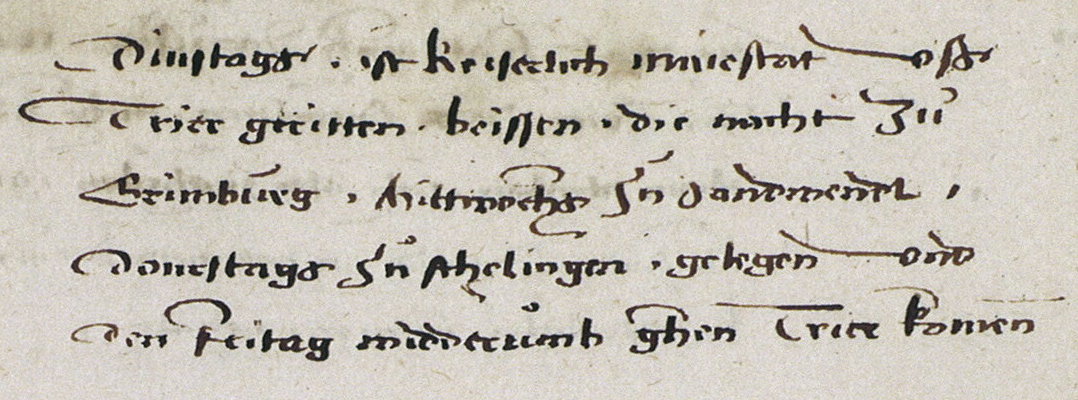 Dinstags . ist keiserlich maiestat vsß
Trier geritten . beissen . die nacht zů
Grimburg . Mittwochs zu
Donestags zů schelingen . gelegen vnd
den freitag widderůmb ghen Trier komen